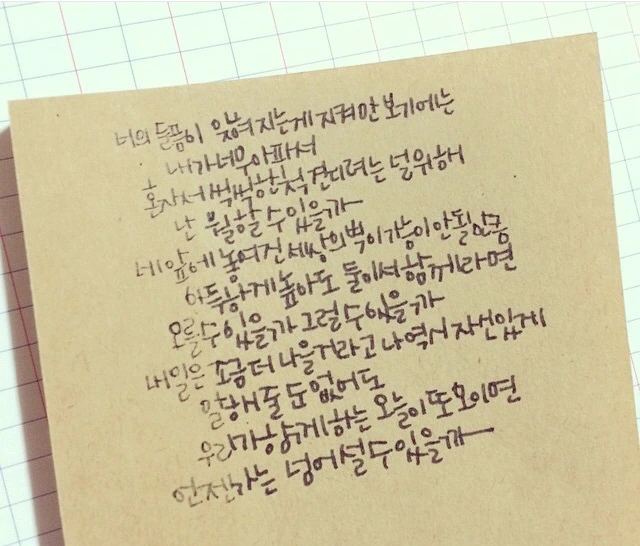 너의 슬픔이 잊혀 지는게 지켜만 보기에는
내가 너무 아파서
혼자서 씩씩한척 견디려는 널위해
난 뭘할수있을까
네 앞에 놓여진 세상의 벽이 가늠이 안될만큼
아득하게 높아도 둘이서 함께라면
오를수 있을까 그럴수있을까
내일은 조금 더 나을거라고 나 역시 자신있게
말해줄 순 없어도
우리가 함께하는 오늘이 또 모이면
언젠가는 넘어설 수 있을까